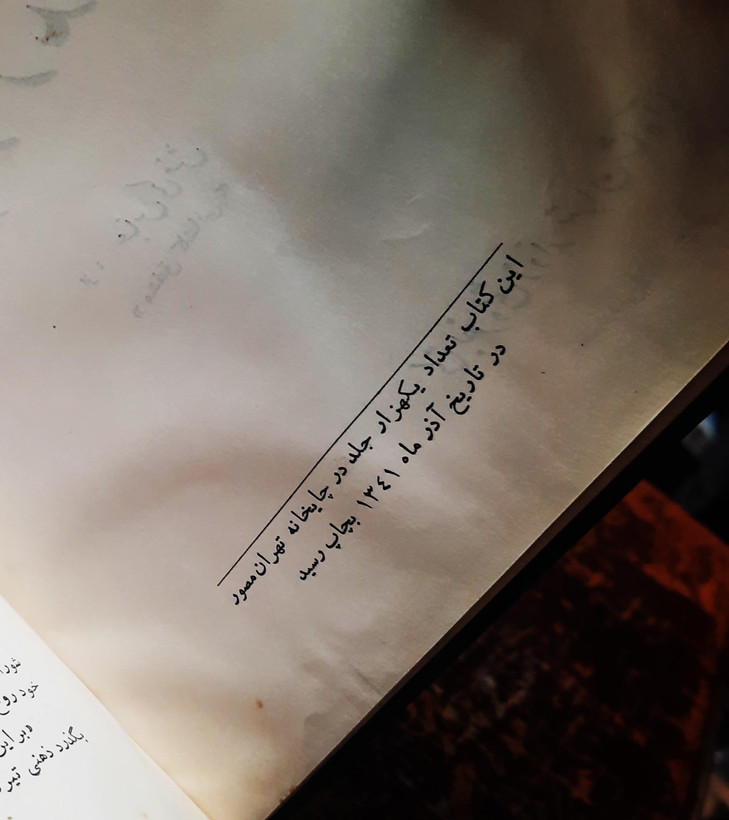 این کتاب تعداد یکهزار جلد در چاپخانه تهران مصور
در تاریخ آذر ماه ۱۳٤۱ بچاپ رسید
خود
وبر این
بگذرد ذهنی تیر